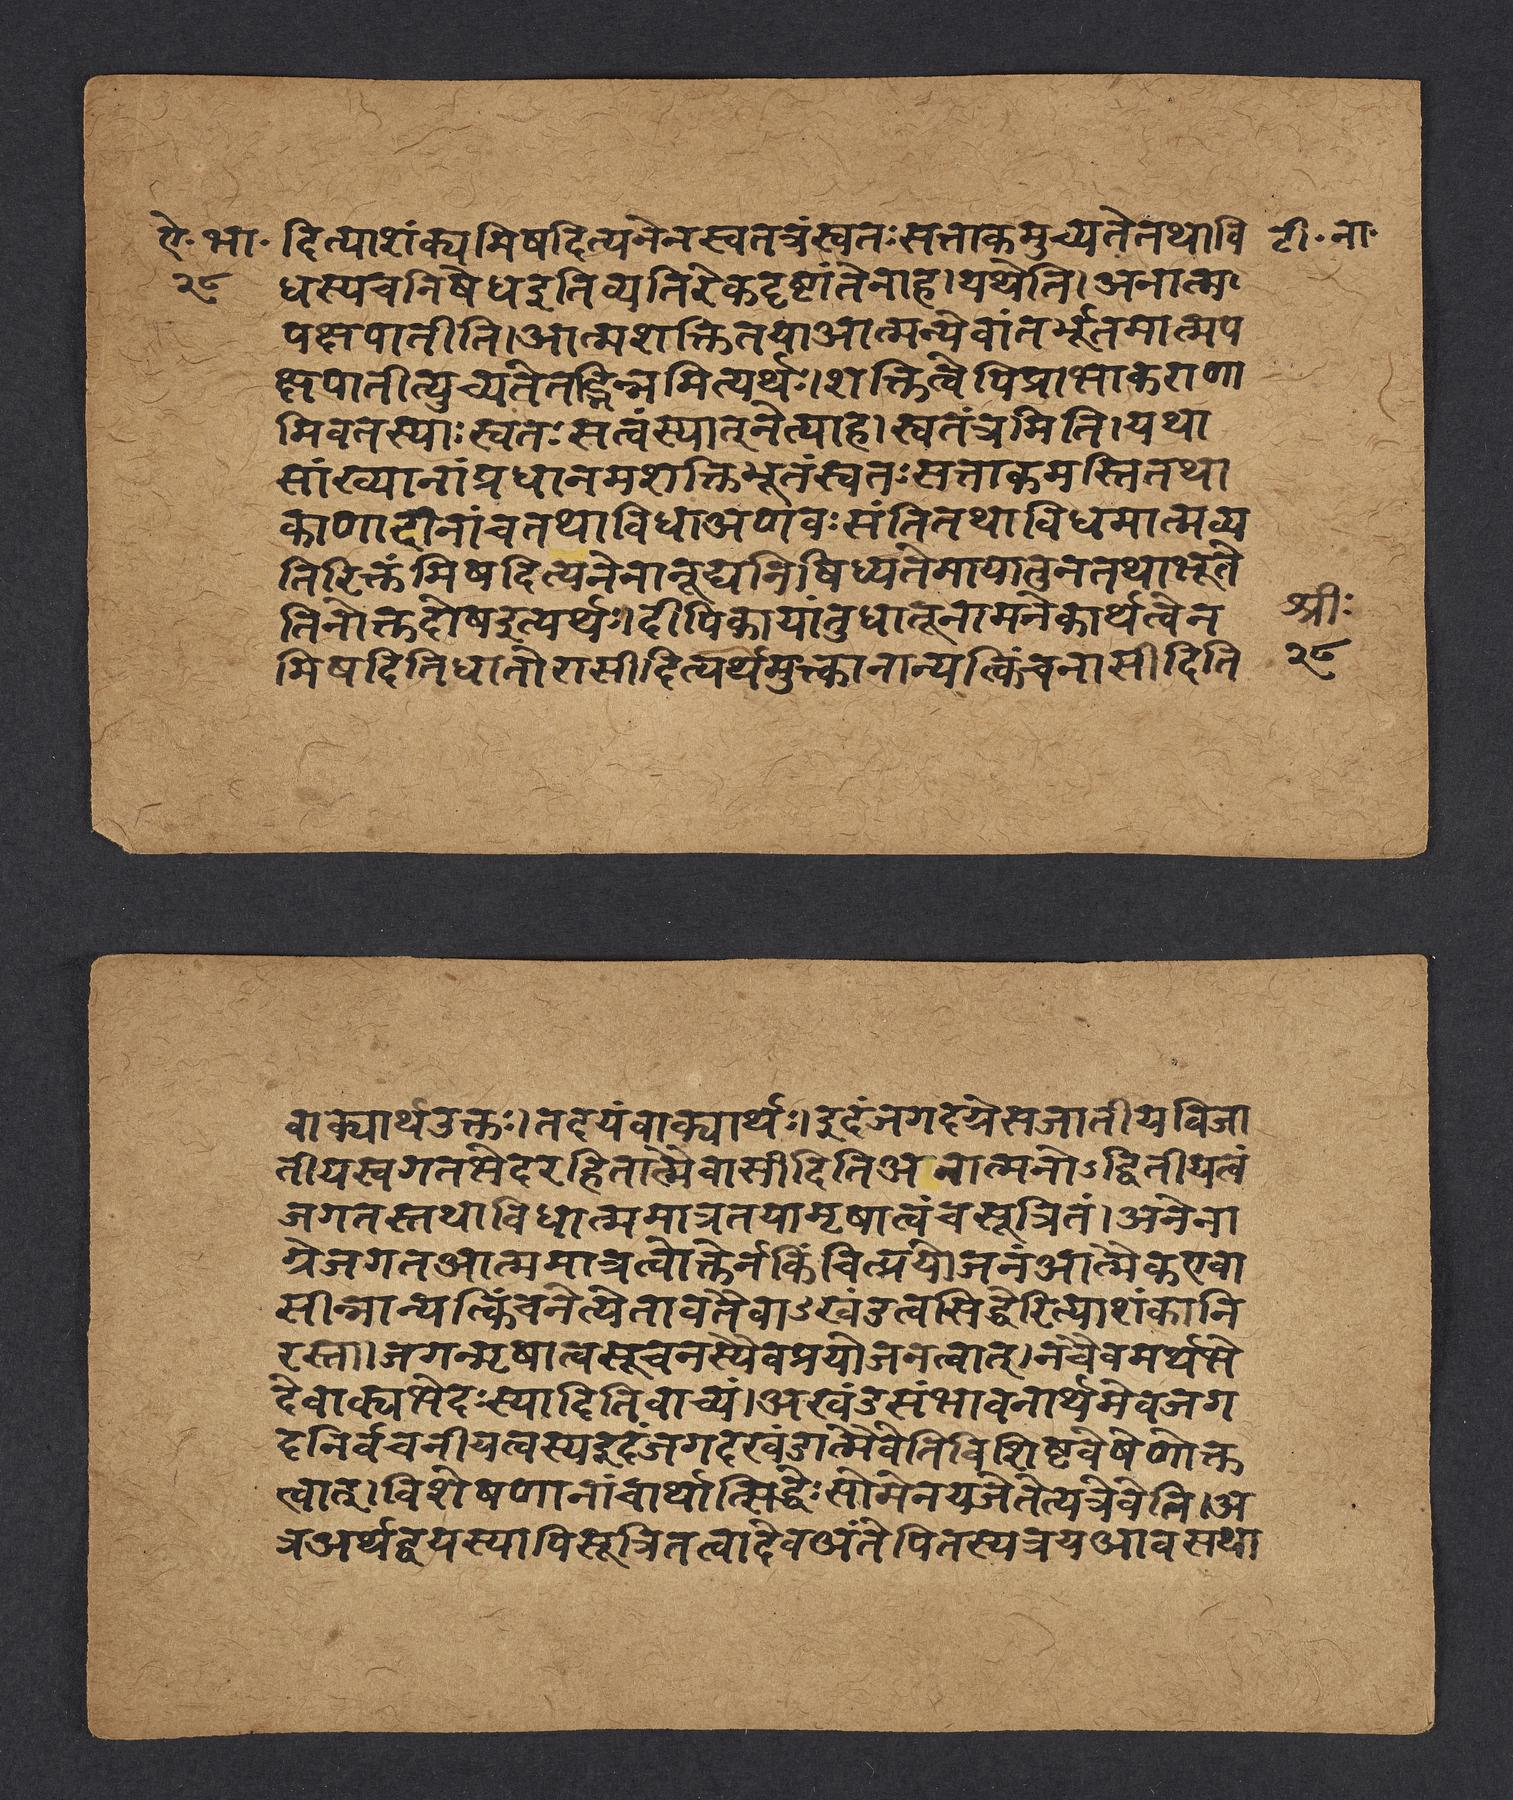 ऐ॰भा॰ दित्याशंक्यमिषदित्यनेनस्वतत्रंस्वतःसत्ताकमुच्यतेतथावि टी॰ना॰
२९ धस्यचनिषेधइतिव्यतिरेकदृष्टांतेनाह।यथेति।अनात्म
पक्षपातीति।आत्मशक्तितयाआत्मन्येवांतर्भूतमात्मप
क्षपातीत्युच्यतेतद्भिन्नमित्यर्थः।शक्तित्वेपिप्राभाकराणा
मिवतस्याःस्वतःसत्वंस्यात्नेत्याह।स्वतंत्रमिति।यथा
सांख्यानांप्रधानमशक्तिभूतंस्वतःसत्ताकमस्तितथा
काणादीनांचतथाविधाअणवःसंतितथाविधमात्मव्य
तिरिक्तंमिषदित्यनेनानूद्यनिषिध्यतेमायातुनतथाभूते
तिनोक्तदोषइत्यर्थः।दीपिकायांतुधातूनामनेकार्थत्वेन श्रीः
मिषदितिधातोरासीदित्यर्थमुक्त्कानान्यत्किंचनासीदिति २९
वाक्यार्थउक्तः।तदयंवाक्यार्थः।इदंजगदग्रेसजातीयविजा
तीयस्वगतभेदरहितात्मेवासीदितिअनात्मनोऽद्वितीयत्वं
जगतस्तथाविधात्ममात्रतयामृषात्वंचसूत्रितं।अनेना
ग्रेजगतआत्ममात्रत्वोक्तेर्नकिंचित्प्रयोजनंआत्मैकएवा
सीन्नान्यत्किंचनेत्येतावतैवाऽखंडत्वसिद्धेरित्याशंकानि
रस्ता।जगन्मृषात्वसूचनस्यैवप्रयोजनत्वात्।नचैवमर्थभे
देवाक्यभेदःस्यादितिवाच्यं।अखंडसंभावनार्थमेवजग
दनिर्वचनीयत्वस्यइदंजगदखंडात्मैवेतिविशिष्टवेषेणोक्त
त्वात्।विशेषणानांचार्थात्सिद्धेःसोमेनयजेतेत्यत्रेवेति।अ
त्रअर्थद्वयस्यापिसूत्रितत्वादेवअंतेपितस्यत्रयआवसथा